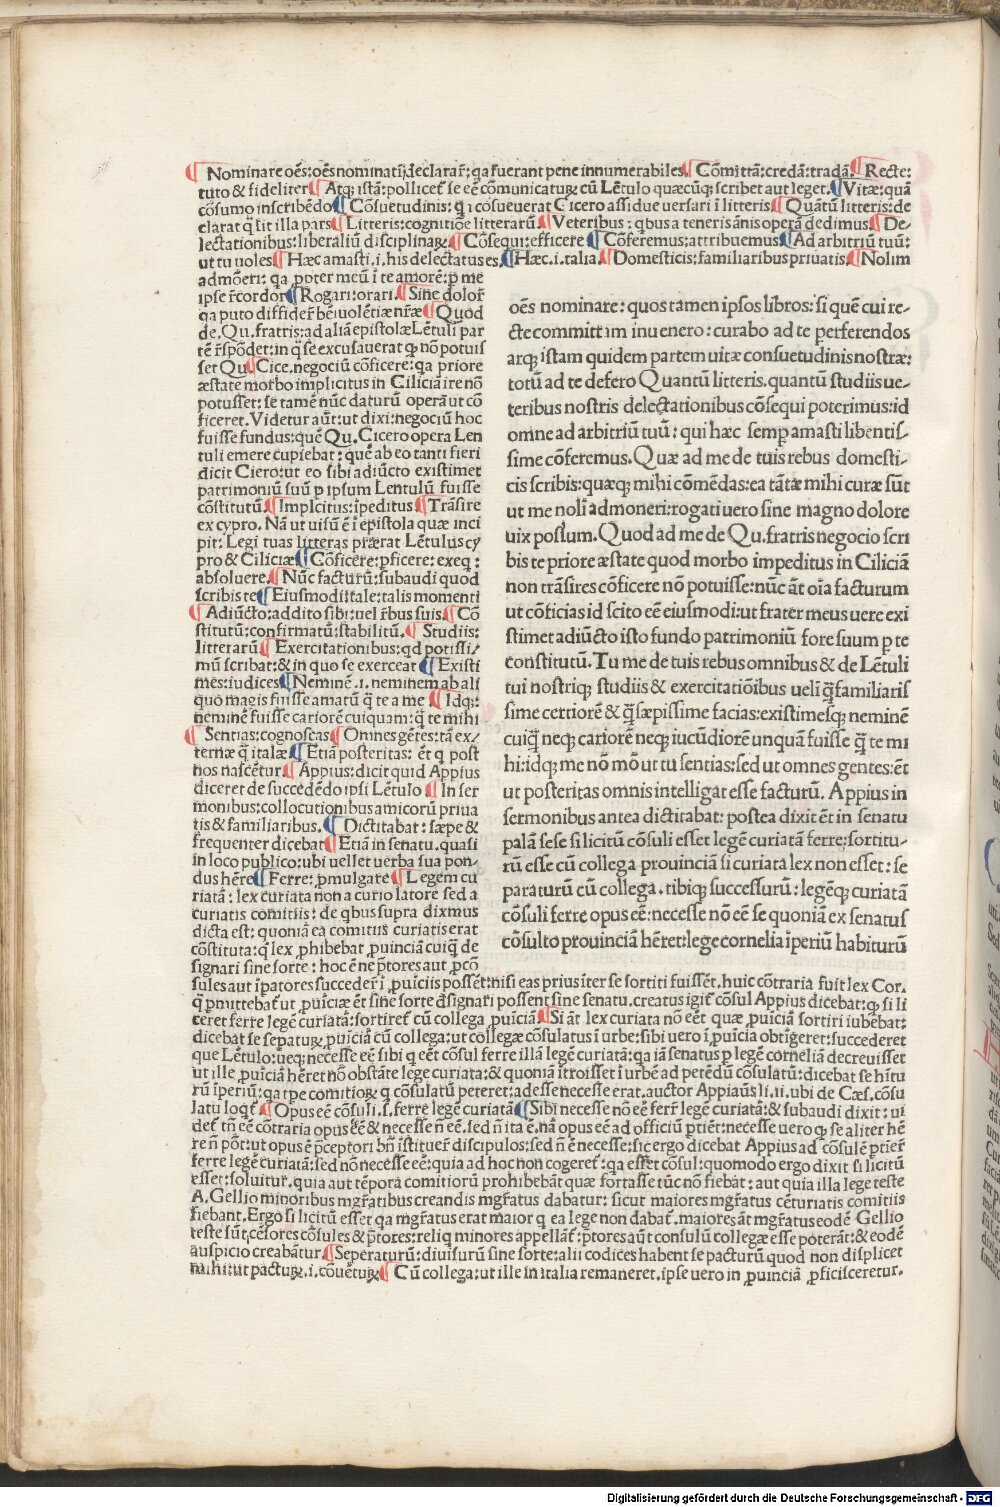 ¶ Nominare oēs: oēs nominatī declarar̃: qa fuerant pene innumerabiles ¶ Cōmittā: credā: tradā. ¶ Recte:
tuto & fideliter ¶ Atq; istā: pollicet̃ se eē cōmunicaturꝫ cū Lētulo quæcūq; scribet aut leget. ¶ Vitæ: quā
cōsumo inscribēdo ¶ Cōsuetudinis: q̃ cōsueuerat Cicero assidue uersari ī litteris ¶ Quātū litteris: de
clarat q̃ sit illa pars ¶ Litteris: cognitiōe litterarū ¶ Veteribus: qbus a teneris ānis operā dedimus ¶ De-
lectationibus: liberaliū disciplinaꝝ ¶ Cōsequi: efficere ¶ Cōferemus: attribuemus ¶ Ad arbitriū tuū:
ut tu uoles ¶ Hæc amasti .i. his delectatus es, ¶ Hæc .i. talia ¶ Domesticis: familiaribus priuatis. ¶ Nolim
admōeri: qa ꝓpter meū ī te amorē: ꝑ me
ipse r̃cordor ¶ Rogari: orari. ¶ Sine dolor̃
qa puto diffider̃ bēiuolētiæ nr̃æ ¶ Quod
de. Qu. fratris: ad aliā epistolæ Lētuli par
tē r̃spōdet: in q̃ se excusauerat qꝫ nō potuis
set Qu ¶ Cice. negociū cōficere: qa priore
æstate morbo implicitus in Ciliciā ire nō
potusset: se tamē nūc daturū operā ut cō
ficeret. Videtur aūt: ut dixi: negociū hoc
fuisse fundus: quē Qu. Cicero opera Len
tuli emere cupiebat: quē ab eo tanti fieri
dicit Ciero: ut eo sibi adiūcto existimet
patrimoniū suū ꝑ ipsum Lentulū fuisse
cōstitutū. ¶ Implicitus: īpeditus ¶ Trāsire
ex cypro. Nā ut uisū ē ī epistola quæ inci
pit: Legi tuas litteras præerat Lētulus cy
pro & Ciliciæ ¶ Cōficere: ꝑficere: exeq:
absoluere. ¶ Nūc facturū: subaudi quod
scribis te ¶ Eiusmodi: tale: talis momenti
¶ Adiūcto: addito sibi: uel r̃bus suis. ¶ Cō
stitutū: confirmatū: stabilitū. ¶ Studiis:
litterarū ¶ Exercitationibus: qd potissi/
mū scribat: & in quo se exerceat ¶ Existi
mes: iudices ¶ Neminē .i. neminem ab ali
quo magis fuisse amatū q̃ te a me ¶ Idq;:
neminē fuisse cariorē cuiquam: q̃ te mihi
¶ Sentias: cognoscas ¶ Omnes gētes: tā ex/
ternæ q̃ italæ ¶ Etiā posteritas: ēt q post
nos nascētur. ¶ Appius: dicit quid Appius
diceret de succedēdo ipsi Lētulo ¶ In ser
monibus: collocutionibus amicorū priua
tis & familiaribus. ¶ Dictitabat: sæpe &
frequenter dicebat ¶ Etiā in senatu. quasi
in loco publico: ubi uellet uerba sua pon/
dus hēre ¶ Ferre: ꝓmulgare ¶ Legem cu
riatā: lex curiata non a curio latore sed a
curiatis comitiis: de qbus supra diximus
dicta est: quoniā ea comitiis curiatis erat
cōstituta: q̃ lex ꝓhibebat ꝓuinciā cuiq̃ de
signari sine sorte: hoc ē ne p̃tores aut ꝓcō
sules aut īpatores succeder̃ ī ꝓuīciis possēt: nisi eas prius īter se sortiti fuissēt. huic cōtraria fuit lex Cor.
q̃ ꝑmittebat̃ ut ꝓuīciæ ēt sine sorte d̃signari possent sine senatu. creatus igit̃ cōsul Appius dicebat: qꝫ si li
ceret ferre legē curiatā: sortiret̃ cū collega ꝓuīciā. ¶ Si āt lex curiata nō eēt quæ ꝓuīciā sortiri iubēbat:
dicebat se sepatuꝝ ꝓuīciā cū collega: ut collegæ cōsulatus ī urbe: sibi uero ī ꝓuīcia obtīgeret: succederet
que Lētulo: ueq; necesse eē sibi q eēt cōsul ferre illā legē curiatā: qa iā senatus ꝑ legē corneliā decreuisset
ut ille ꝓuīciā hēret nō obstāte lege curiata: & quoniā ītroisset ī urbē ad petēdū cōsulatū: dicebat se hītu
rū īperiū: qa tꝑe comitioꝝ q cōsulatū peteret: adesse necesse erat. auctor Appiaūs li. ii. ubi de Cæs. cōsu
latu loq̃t̃ ¶ Opus eē cōsuli .s. ferre legē curiatā ¶ Sibi necesse nō eē ferr̃ legē curiatā: & subaudi dixit: ui
det̃ tñ eē cōtraria opus eē & necesse ñ eē. sed ñ ita ē. nā opus eē ad officiū ꝑtiēt: necesse uero qꝫ se aliter hē
re ñ pōt: ut opus ē p̃ceptori bñ īstituer̃ discipulos: sed ñ ē necesse: sic ergo dicebat Appius ad cōsulē ꝑtier̃
ferre legē curiatā: sed nō necesse eē: quia ad hoc non cogeret̃: qa esset cōsul: quomodo ergo dixit si licitū
esset: soluitur. quia aut tēpora comitiorū prohibebāt quæ fortasse tūc nō fiebāt: aut quia illa lege teste
A. Gellio minoribus mgr̃atibus creandis mgr̃atus dabatur: sicut maiores mgr̃atus cēturiatis comitiis
fiebant. Ergo si licitū esset qa mgr̃atus erat maior q ea lege non dabat̃. maiores āt mgr̃atus eodē Gellio
teste sūt, cēsores cōsules & p̃tores: reliq minores appellāt̃: p̃tores aūt consulū collegæ esse poterāt: & eodē
auspicio creabātur. ¶ Seperaturū: diuisurū sine sorte: alii codices habent se pacturū quod non displicet
mihi: ut pactuꝝ .i. cōuētuꝝ ¶ Cū collega: ut ille in italia remaneret. ipse uero in ꝓuinciā ꝓficisceretur.
oēs nominare: quos tamen ipsos libros: si quē cui re-
cte committam inuenero: curabo ad te perferendos
atq; istam quidem partem uitæ consuetudinis nostræ:
totū ad te defero Quantū litteris. quantū studiis ue-
teribus nostris delectationibus cōsequi poterimus: id
omne ad arbitriū tuū: qui hæc semꝑ amasti libentis-
sime cōferemus. Quæ ad me de tuis rebus domesti-
cis scribis: quæq; mihi cōmēdas: ea tātæ mihi curæ sūt
ut me noli admoneri: rogati uero sine magno dolore
uix possum. Quod ad me de Qu. fratris negocio scri
bis te priore æstate quod morbo impeditus in Ciliciā
non trāsires cōficere nō potuisse: nūc āt oīa facturum
ut cōficias id scito eē eiusmodi: ut frater meus uere exi
stimet adiūcto isto fundo patrimoniū fore suum ꝑ te
constitutū. Tu me de tuis rebus omnibus & de Lētuli
tui nostriq; studiis & exercitatiōibus ueli q̃familiaris
sime certiorē & q̃sæpissime facias: existimesq; neminē
cuiq̃ neq; cariorē neq; iucūdiorē unquā fuisse q̃ te mi
hi: idq; me nō mō ut tu sentias: sed ut omnes gentes: ēt
ut posteritas omnis intelligat esse facturū. Appius in
sermonibus antea dictitabat: postea dixit ēt in senatu
palā sese si licitū cōsuli esset legē curiatā ferre: sortitu-
rū esse cū collega prouinciā si curiata lex non esset: se
paraturū cū collega. tibiq; successurū: legēq; curiatā
cōsuli ferre opus eē: necesse nō eē se quoniā ex senatus
cōsulto prouinciā hēret: lege cornelia īperiū habiturū
Digitalisierung gefördert durch die Deutsche Forschungsgemeinschaft - DFG